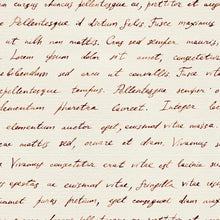 cursus rhoncus pellentesque ac, porttitor at augu
Pellentesque id dictum felis. Fusce maximus
ut nibh non mattis. Cras sed semper mauris,
Lorem ipsum dolor sit amet, consectetur
bibendum sed arcu ut convallis. Fusce vita
pellentesque tempus. Pellentesque semper
elementum pharetra laoreet. Integer
elementum auctor eget, euismod vitae massa
mattis sed, ornare at diam. Vivamus
Vivamus consectetur erat vitae est lacinia
egestas ac euismod vitae, fringilla vitae
amet purus pretium, eget consequat diam